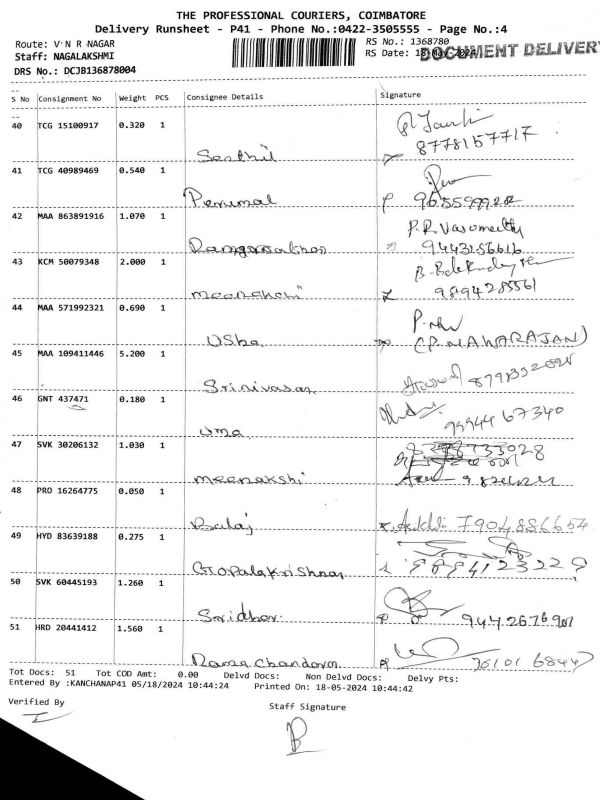 THE PROFESSIONAL COURIERS, COIMBATORE
Delivery Runsheet - P41 - Phone No.:0422-3505555 - Page No.:4
Route: V N R NAGAR
RS No.: 1368780
Staff: NAGALAKSHMI
RS Date: 18-May-2024
DOCUMENT DELIVERY
DRS No.: DCJB136878004
S No Consignment No Weight PCS Consignee Details Signature
40 TCG 15100917 0.320 1
8778157717
Senthil
41 TCG 40989469 0.540 1
Perumal
42 MAA 863891916 1.070 1
P.R. Vasumathy
9443156616
43 KCM 50079348 2.000 1
Meenakshi 9894285561
44 MAA 571992321 0.690 1
Usha (P. NAWARAJAN)
45 MAA 109411446 5.200 1
Srinivasan
46 GNT 437471 0.180 1
99944 67340
Uma
47 SVK 30206132 1.030 1
Meenakshi
48 PRO 16264775 0.050 1
Balaj 7904886654
49 HYD 83639188 0.275 1
Gopalakrishnan
50 SVK 60445193 1.260 1
Sridhar
51 HRD 20441412 1.560 1
Rama Chandara
Tot Docs: 51 Tot COD Amt: 0.00 Delvd Docs: Non Delvd Docs: Delvy Pts:
Entered By :KANCHANAP41 05/18/2024 10:44:24 Printed On: 18-05-2024 10:44:42
Verified By Staff Signature